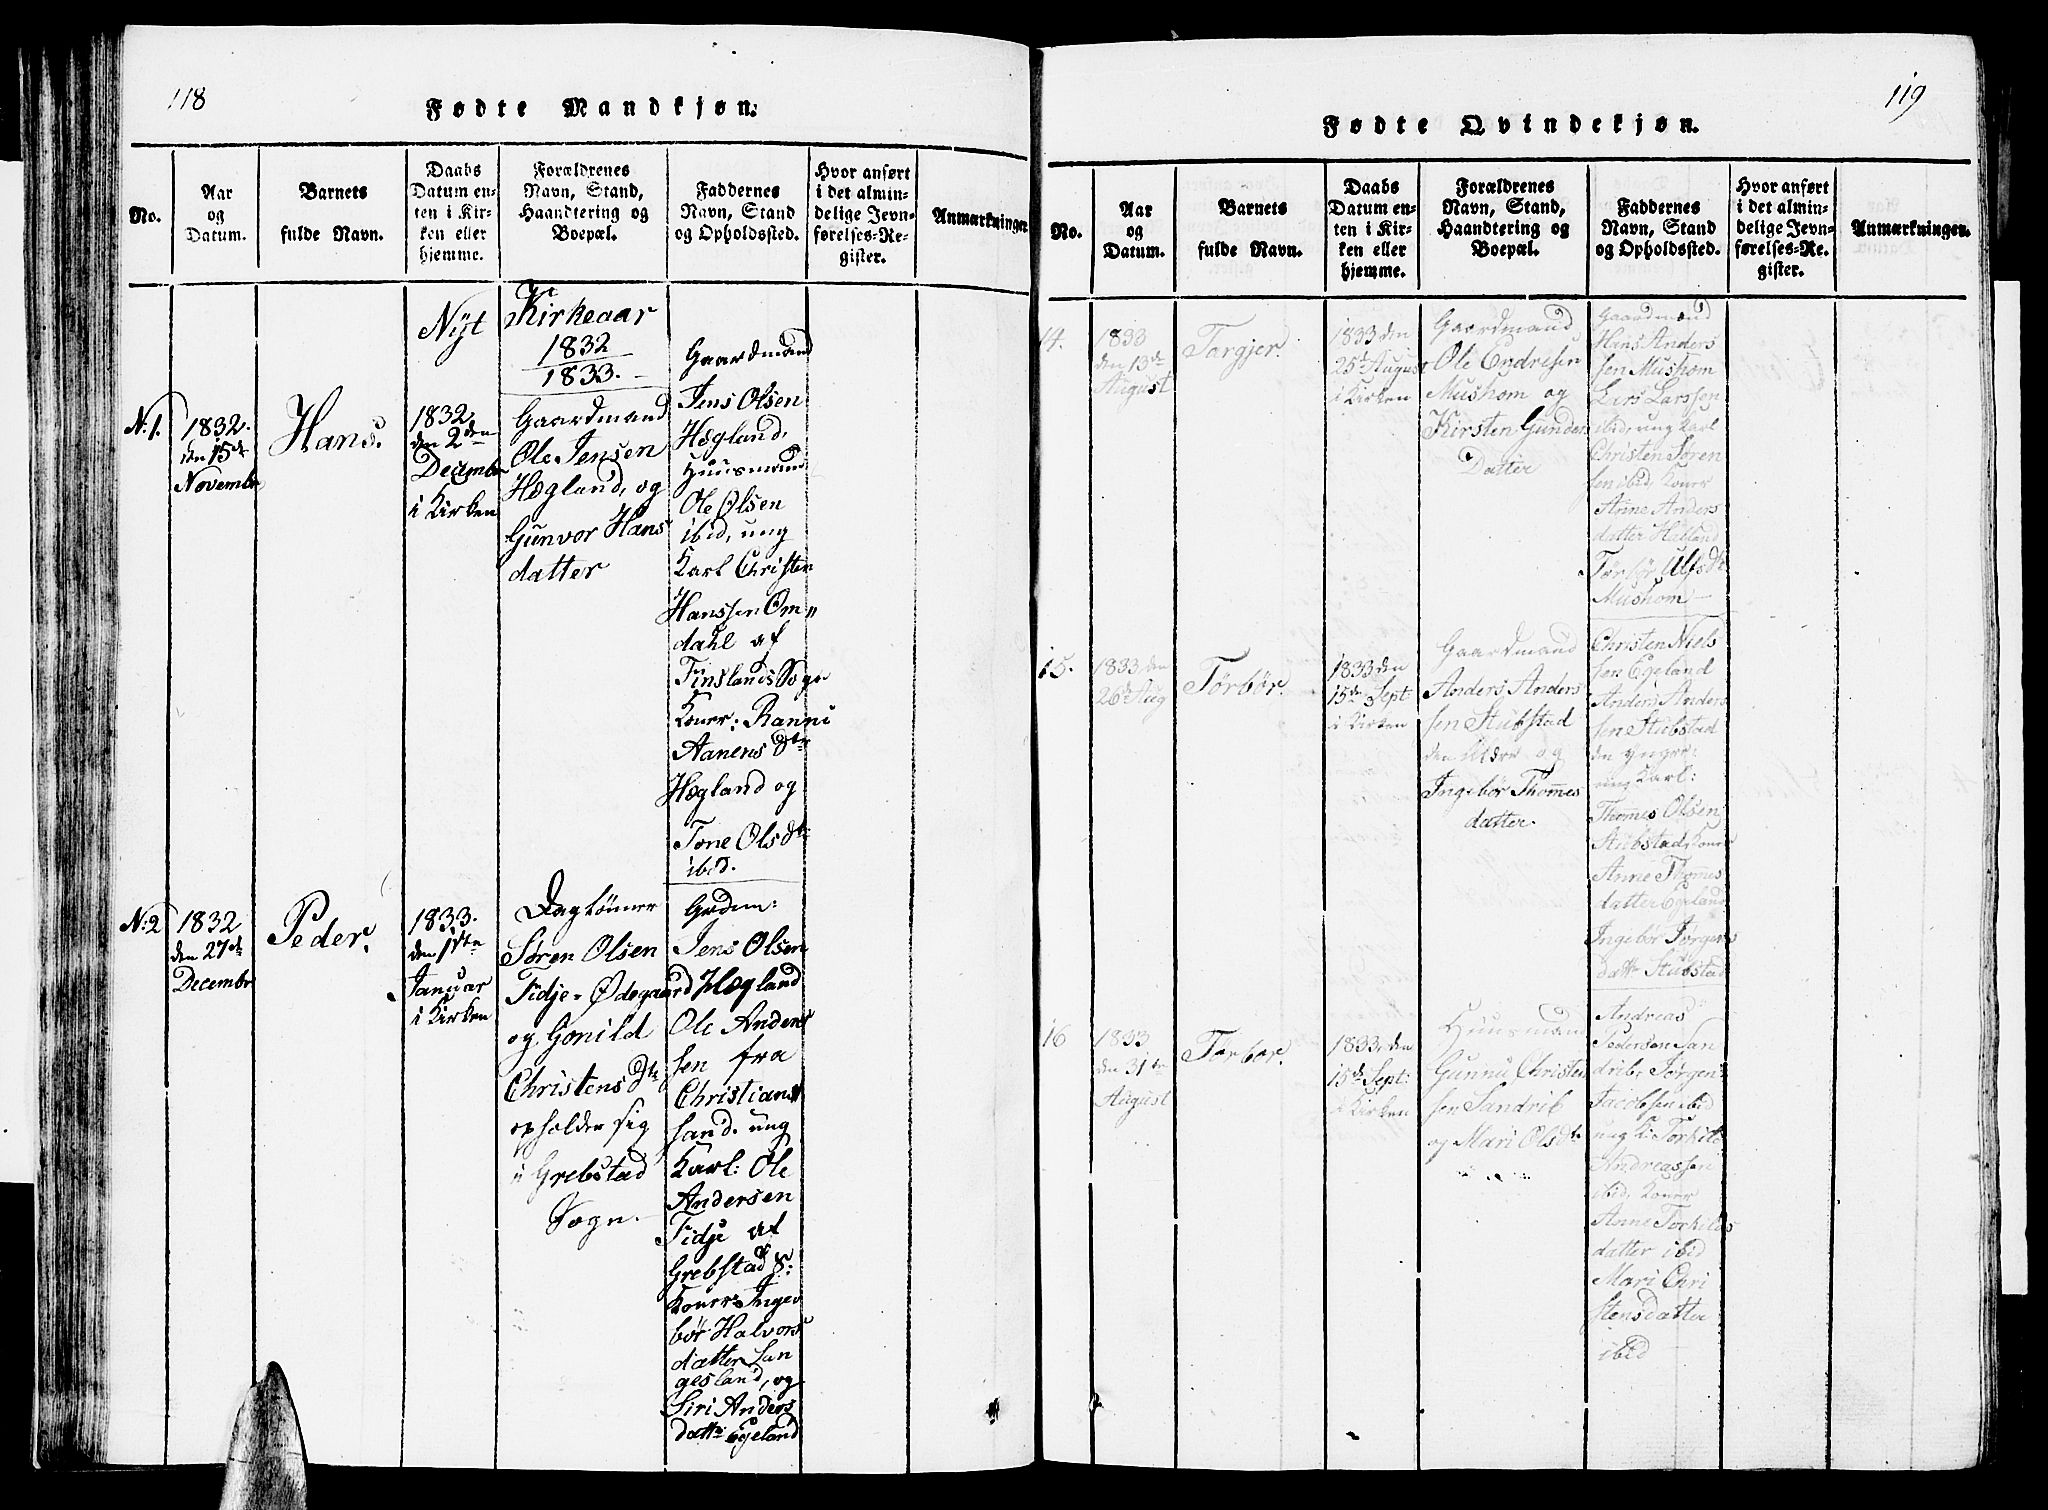 118
Fødte Mandkjøn.
No.
Aar
og
Datum.
Barnets
fulde Navn.
Daabs
Datum en-
ten i Kir-
ken eller
hjemme.
Forældrenes
Navn, Stand,
Haandtering og
Boepæl.
Faddernes
Navn, Stand
og Opholdssted.
Hvor anført
i det almin-
delige Jevn-
førelses-Re-
gister.
Anmærkninger
Nyt Kirkeaar
1832
1833.
No 1.
1832.
den 15de
Novembr
Hans.
1832
den 2den
Decembr
i Kirken
Gaardmand
Ole Jensen
Hægland, og
Gunvor Hans
datter
Gaardmand
Jens Olsen
Hægland,
Huusmand
Ole Olsen
ibid, ung
Karl Christen
Hanssen Om=
dahl af
Finslands Sogn
Koner: Ranni
Aanens Dtr
Hægland og
Tone Olsdtr
ibid.
No 2
1832
den 27de
Decembr
Peder.
1833.
den 1ste
Januar
i Kirken
Daglönner
Søren Olsen
Fidje-Ødegaard
og Gonild
Christens Dtr
opholder sig
i Grebstad
Sogn.
Gdm:
Jens Olsen
Hægland
Ole Anders
sen fra
Christian=
sand. ung
Karl: Ole
Andersen
Fidje af
Grebstad S:
Koner: Inge
bør Halvors
datter Lan
gesland, og
Siri Anders
datter Egeland
119
Fødte Qvindekjøn.
No.
Aar
og
Datum.
Barnets
fulde Navn.
Daabs
Datum en-
ten i Kir-
ken eller
hjemme.
Forældrenes
Navn, Stand,
Haandtering og
Boepæl.
Faddernes
Navn, Stand
og Opholdssted.
Hvor anført
i det almin-
delige Jevn-
førelses-Re-
gister.
Anmærkninger.
14.
1833
den 13de
August
Targjer.
1833 den
25de August
i Kirken
Gaardmand
Ole Endresen
Mushom og
Kirsten Gunders
Datter
Gaardmænd
Hans Anders
sen Mushom
Lars Larssen
ibid, ung Karl
Christen Søren
sen ibid, Koner
Anne Anders
datter Haaland
Tørbør Alfsdtr
Mushom
15.
1833 den
26de Aug
Tørbør.
1833 den
15de Sept:
i Kirken
Gaardmand
Anders Anders
sen Stubstad
den Ældre og
Ingebør Thomes
datter.
Christen Niels
sen Egeland
Anders Anders
sen Stubstad
den yngre:
ung Karl:
Thomes Olsen
Stubstad, Koner
Anne Thomes
datter Egeland
Ingebør Jørgens
datter Stubstad
16
1833
den 31te
August
Tørbor.
1833 den
15de Sept:
i Kirken
Huusmand
Gunnu Christen
sen Sandrib
og Mari Olsdtr
Andreas
Pedersen San
drib, Jørgen
Jacobsen ibid
ung K: Torkild
Andreassen
ibid, Koner
Anne Torkilds
datter ibid
Mari Chri
stensdatter
ibid